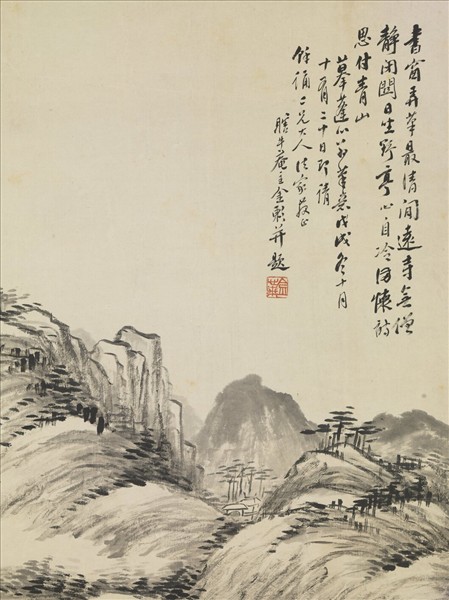 書窗弄筆最清閒遠寺無僧
靜閉關日坐野亭心自冷因懷詩
思付青山
摹蓬心筆意戊戌冬十月
十有二十日即請
餘 二兄大人法家教正
瞎牛菴主金 并題